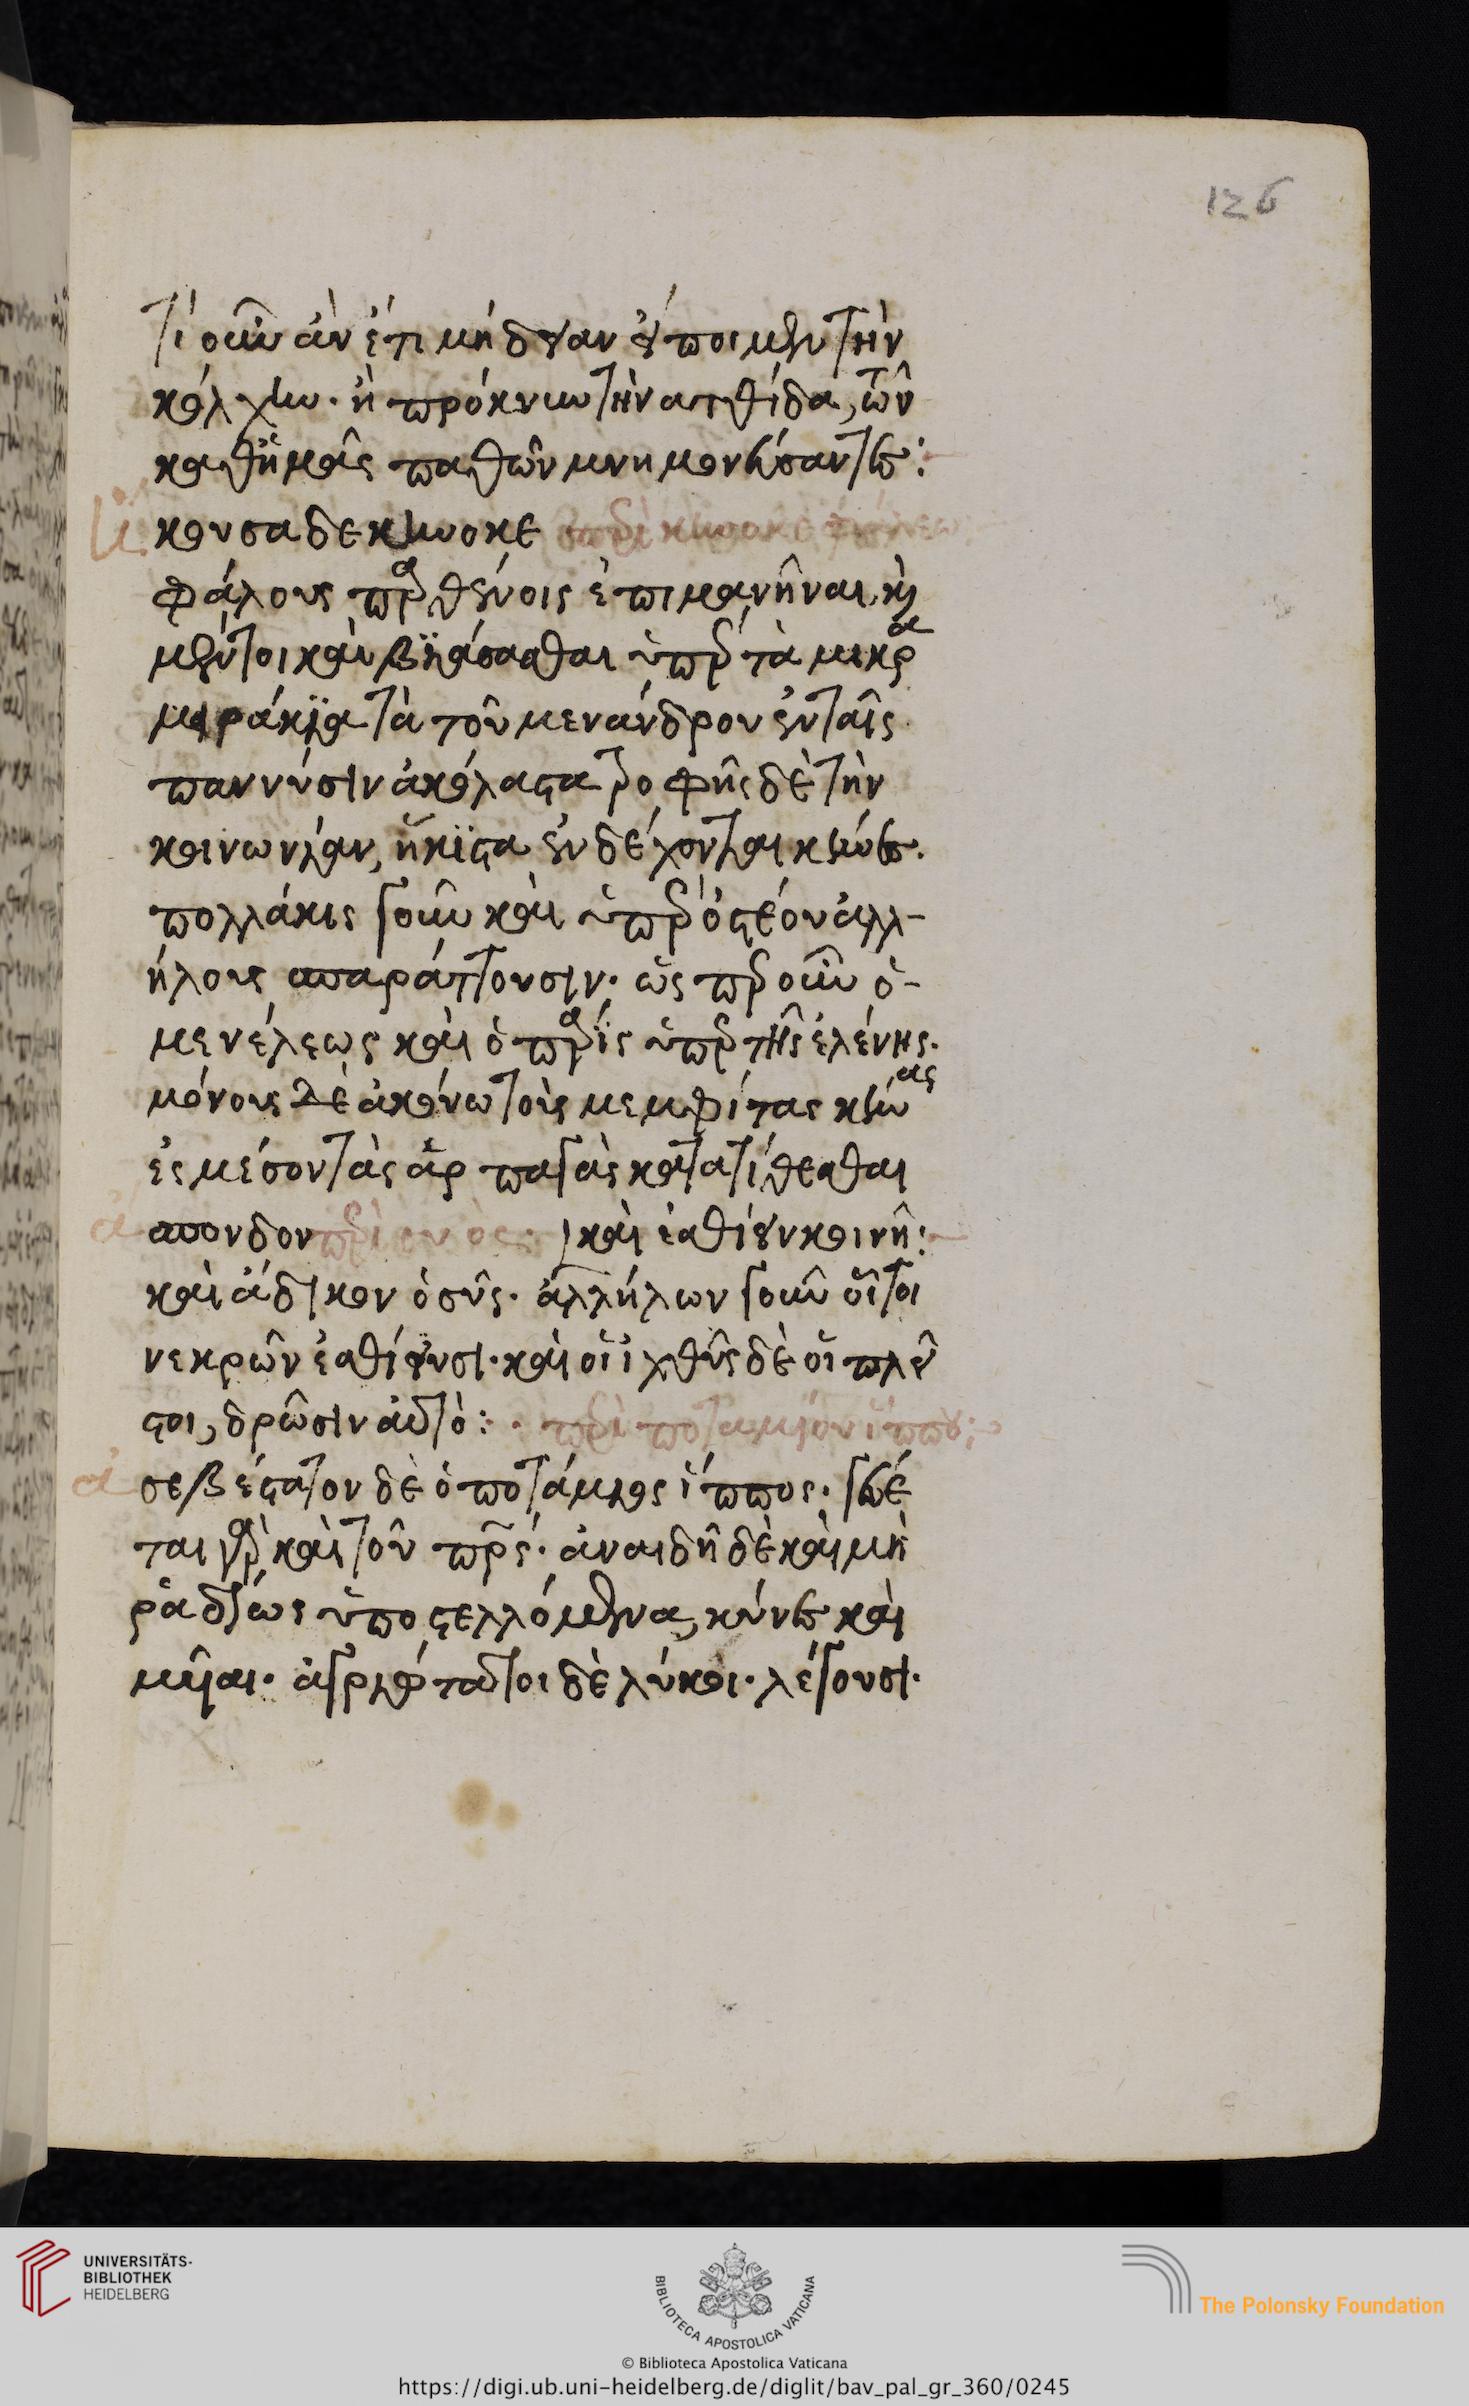 126
τί οὖν ἂν ἔτι μήδειαν εἴποιμεν τὴν
κόλχην. ἢ πρόκνην τὴν ατθίδα, τῶν
καθ' ἡμᾶς παθῶν μνημονεύσαντες:
ἤκουσα δε κυνοκε
φάλους παρθένοις ἐπιμανῆναι, καὶ
μέντοι καὶ βϊάσασθαι ὑπὲρ τὰ μικρα
μειράκϊα τὰ τοῦ μενάνδρου ἐν ταῖς
παννύσιν ἀκόλαστα τροφῆς δὲ τὴν
κοινωνίαν, ἥκϊστα ἐνδέχονται κύνες.
πολλάκις γοῦν καὶ ὑπὲρ ὀστέου ἀλλ-
ήλους σπαράττουσιν. ὡς περ οὖν ὁ-
μενέλεως καὶ ὁ πάρϊς ὑπὲρ τῆς ἑλένης.
μόνους δὲ ἀκούω τοὺς μεμφίτας κύνας
ἐς μέσον τὰς ἁρπαγὰς κατατίθεσθαι
σπονδον περὶ συὸς: καὶ ἐσθίειν κοινῇ:
καὶ ἄδικον ὁ σῦς. ἀλλήλων γοῦν οὗτοι
νεκρῶν ἐσθίουσι. καὶ οἱ ἰχθῦς δὲ οἱ πλεῖ
στοι, δρῶσιν αὐτό: περὶ ποταμίου ἵππου:
ἀσεβέστατον δὲ ὁ ποτάμιος ἵππος. γεύε
ται γὰρ καὶ τοῦ πατρός. ἀναιδῆ δὲ καὶ μὴ
ῥαδίως ὑποστελλόμενα, κύνες καὶ
μυῖαι. ἀγριώτατοι δὲ λύκοι. λέγουσι.
UNIVERSITÄTS-
BIBLIOTHEK
HEIDELBERG
BIBLIOTECA APOSTOLICA VATICANA
The Polonsky Foundation
© Biblioteca Apostolica Vaticana
https://digi.ub.uni-heidelberg.de/diglit/bav_pal_gr_360/0245